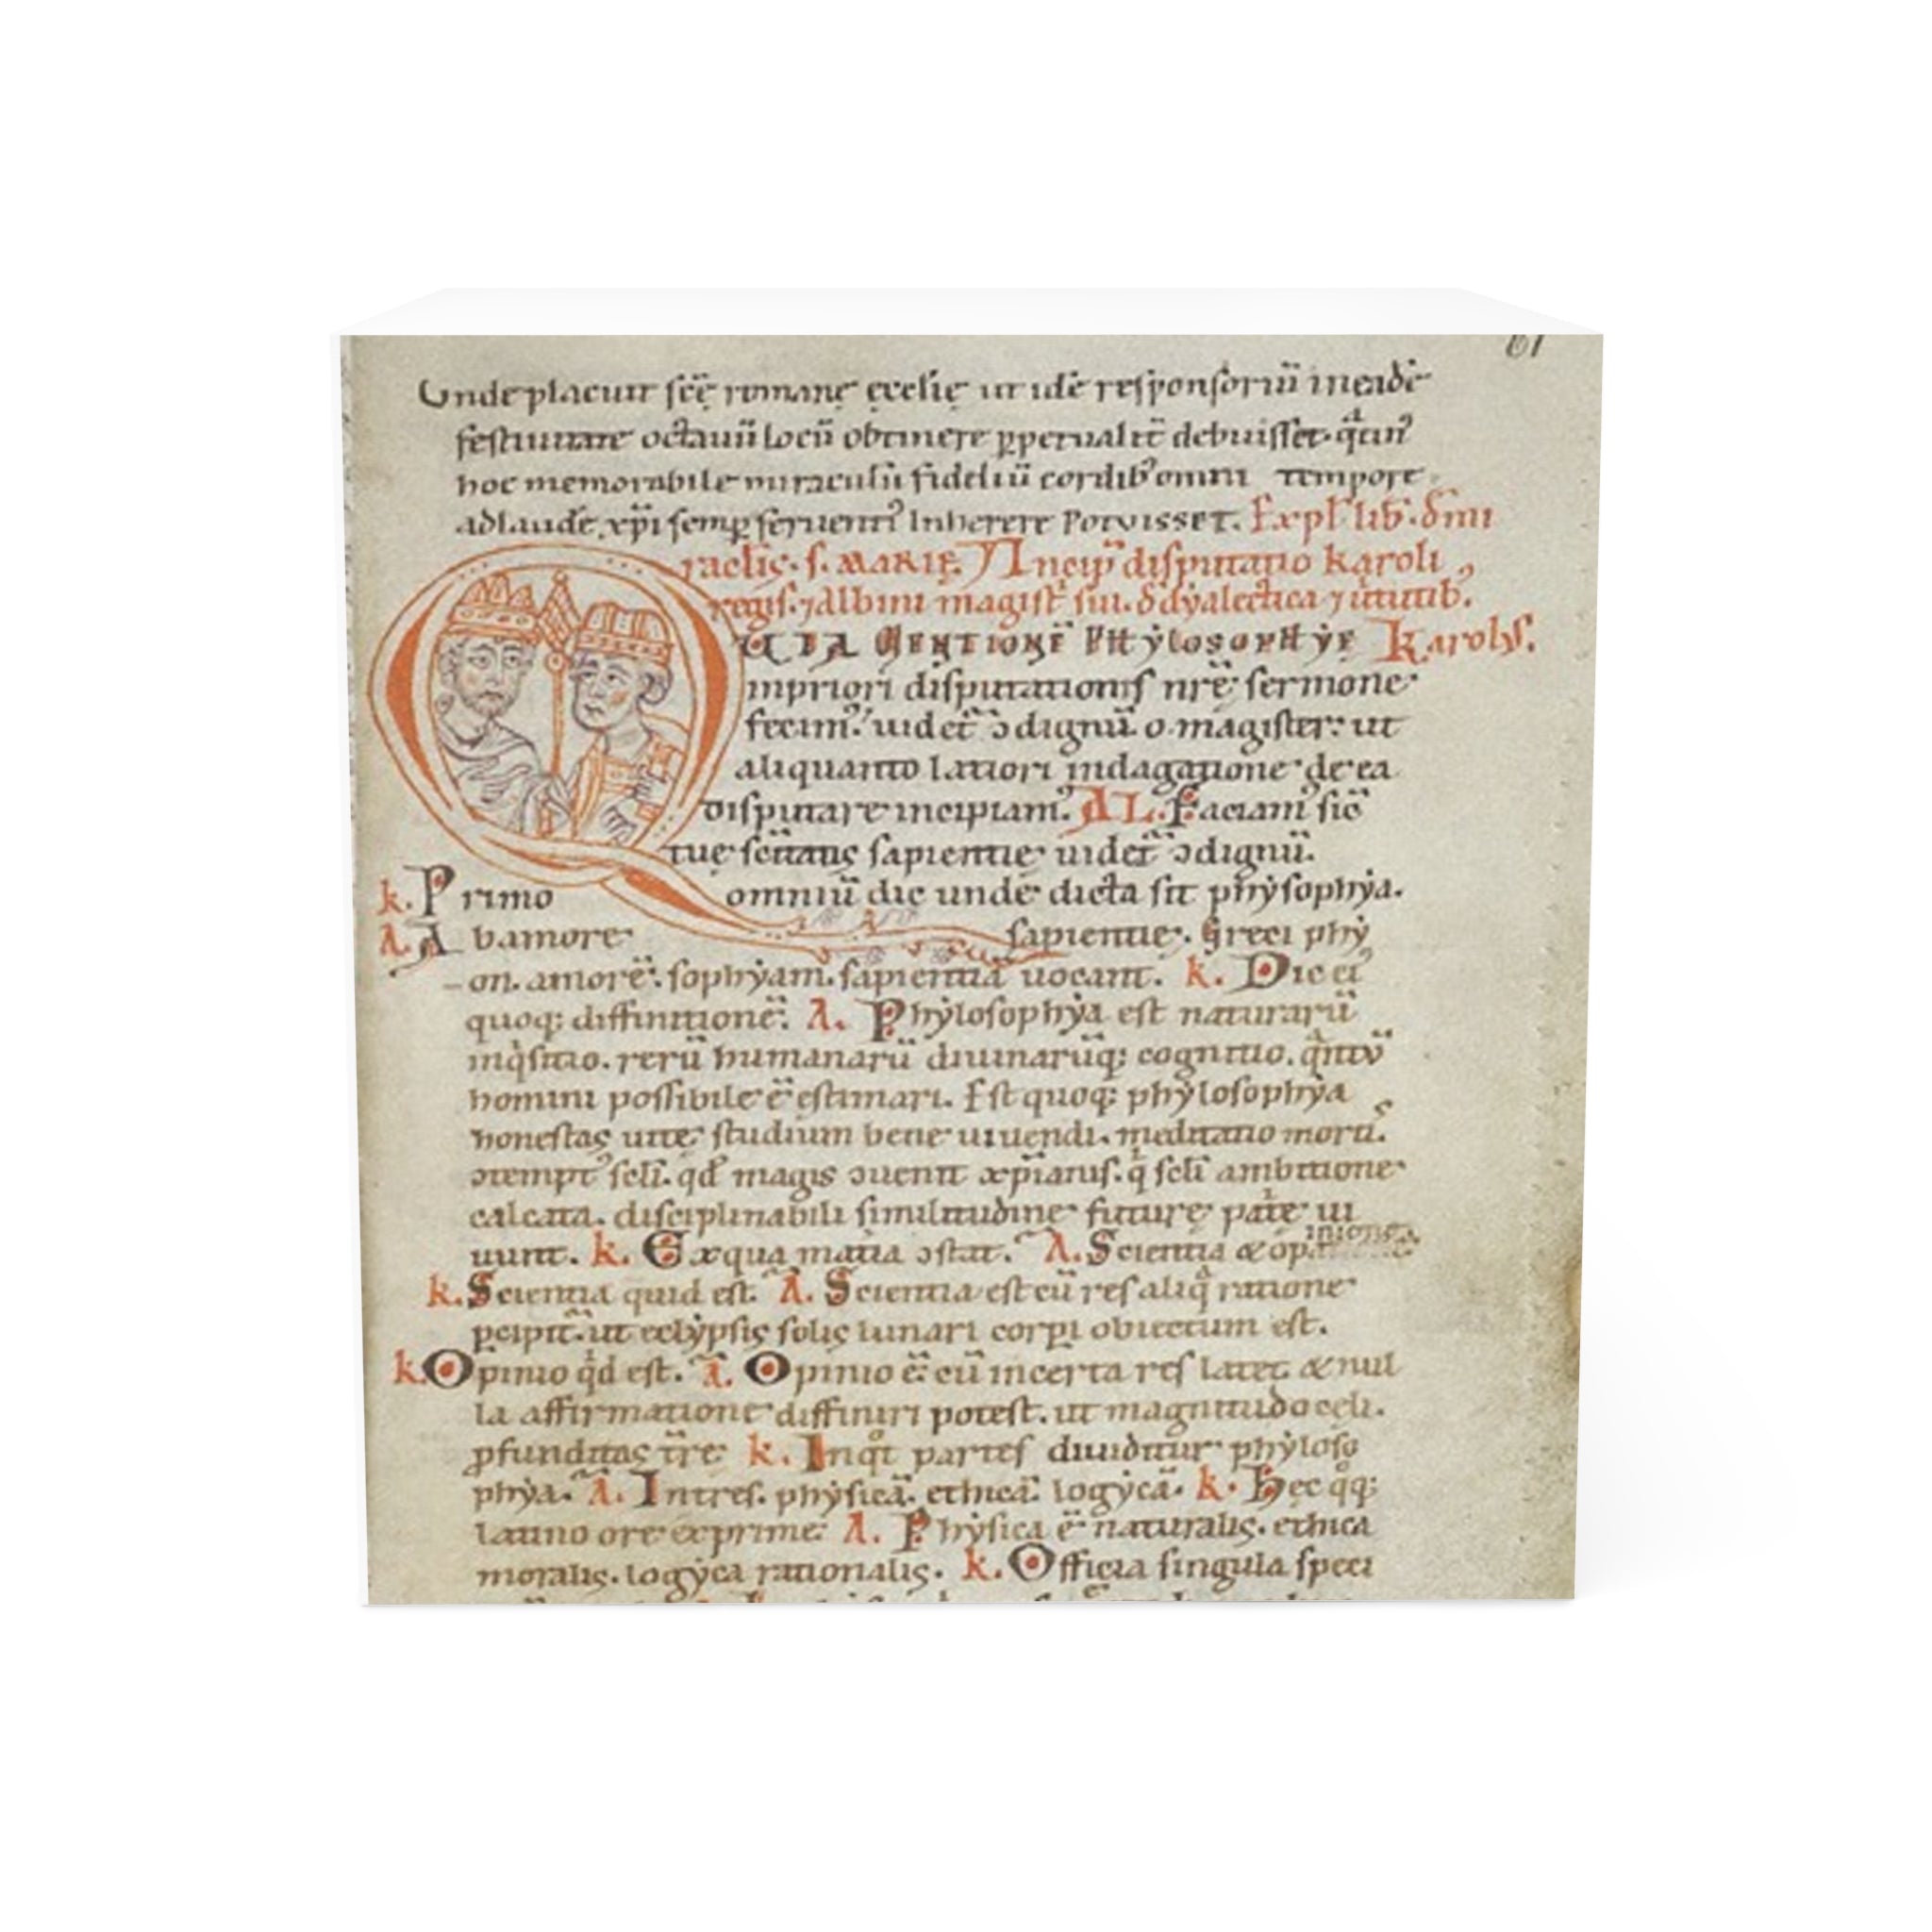 61
Unde placuit scē romane ęcclię ut idē responsoriū ineadē
festiuitate octauū locū obtinere ꝑpetualit̄ debuisset. qͣtinꝰ
hoc memorabile miraculū fideliū cordibꝰ omni tempore
ad laudē xp̄i semꝑ seruentiꝰ Inherere Potuisset. Expl̄ lib̄.
racl̄is. s. MARIE. Incip̄ disputatio karoli
regis. ⁊ Albini magist̄ sui. đ dyalectica ⁊ uirtutib.
QUIA MENTIONĒ PHYLOSOPHYE Karolus.
inpriori disputationis nrē sermone
fecimꝰ. uidet̄ ↄdignū o magister. ut
aliquanto latiori indagatione de ea
disputare incipiamꝰ. AL. Faciamꝰ sic̄
tuę sapientie uidet̄ ↄdignū.
k. Primo omniū dic unde dicta sit physophya.
A. Ab amore sapientie. Greci phy
on. amorē. sophyam. sapientiā uocant. k. Dic eiꝰ
quoq; diffinitionē. A. Phylosophya est naturarū
inqisitio. rerū humanarū diuinarūq; cognitio. qͣntū
homini possibile ē estimari. Est quoq; phylosophya
honestas uitę. studium bene uiuendi. meditatio mortis.
ↄtemptꝰ scl̄i. qđ magis ↄuenit xp̄ianis. qi scl̄i ambitione
calcata. disciplinabili similitudine future patͥe ui
uunt. k. Ex qua matia ↄstat. A. Scientia & opinione
k. Scientia quid est. A. Scientia est cū res aliqͣ ratione
ꝑcipit̄. ut eclypsis solis lunari corꝑi obiectum est.
k. Opinio qͥd est. A. Opinio ē. cū incerta res latet & nul
la affirmatione diffiniri potest. ut magnitudo celi.
ꝓfunditas t̄re. k. Inqͦt partes diuiditur phyloso
phya. A. In tres. physicā. ethicā. logycā. k. Hęc qͦq;
latino ore exprime. A. Physica ē naturalis. ethica
moralis. logyca rationalis. k. Officia singula speci